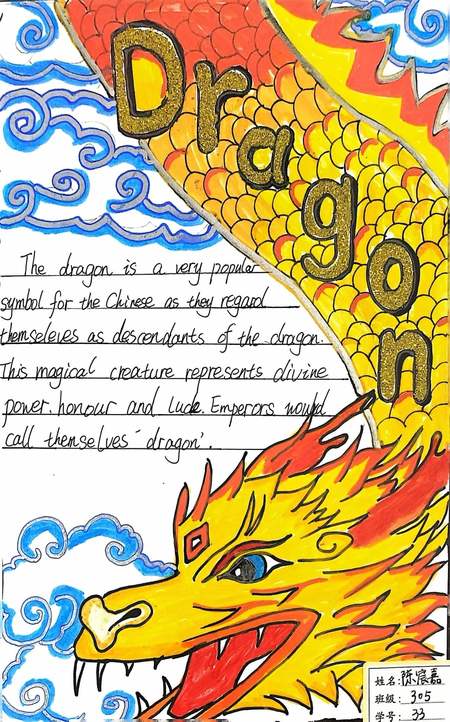 Dragon
The dragon is a very popular
symbol for the Chinese as they regard
themseleves as descendants of the dragon.
This magical creature represents divine
power, honour and luck. Emperors would
call themselves 'dragon'.
姓名:陈宸嘉
班级:305
学号:33